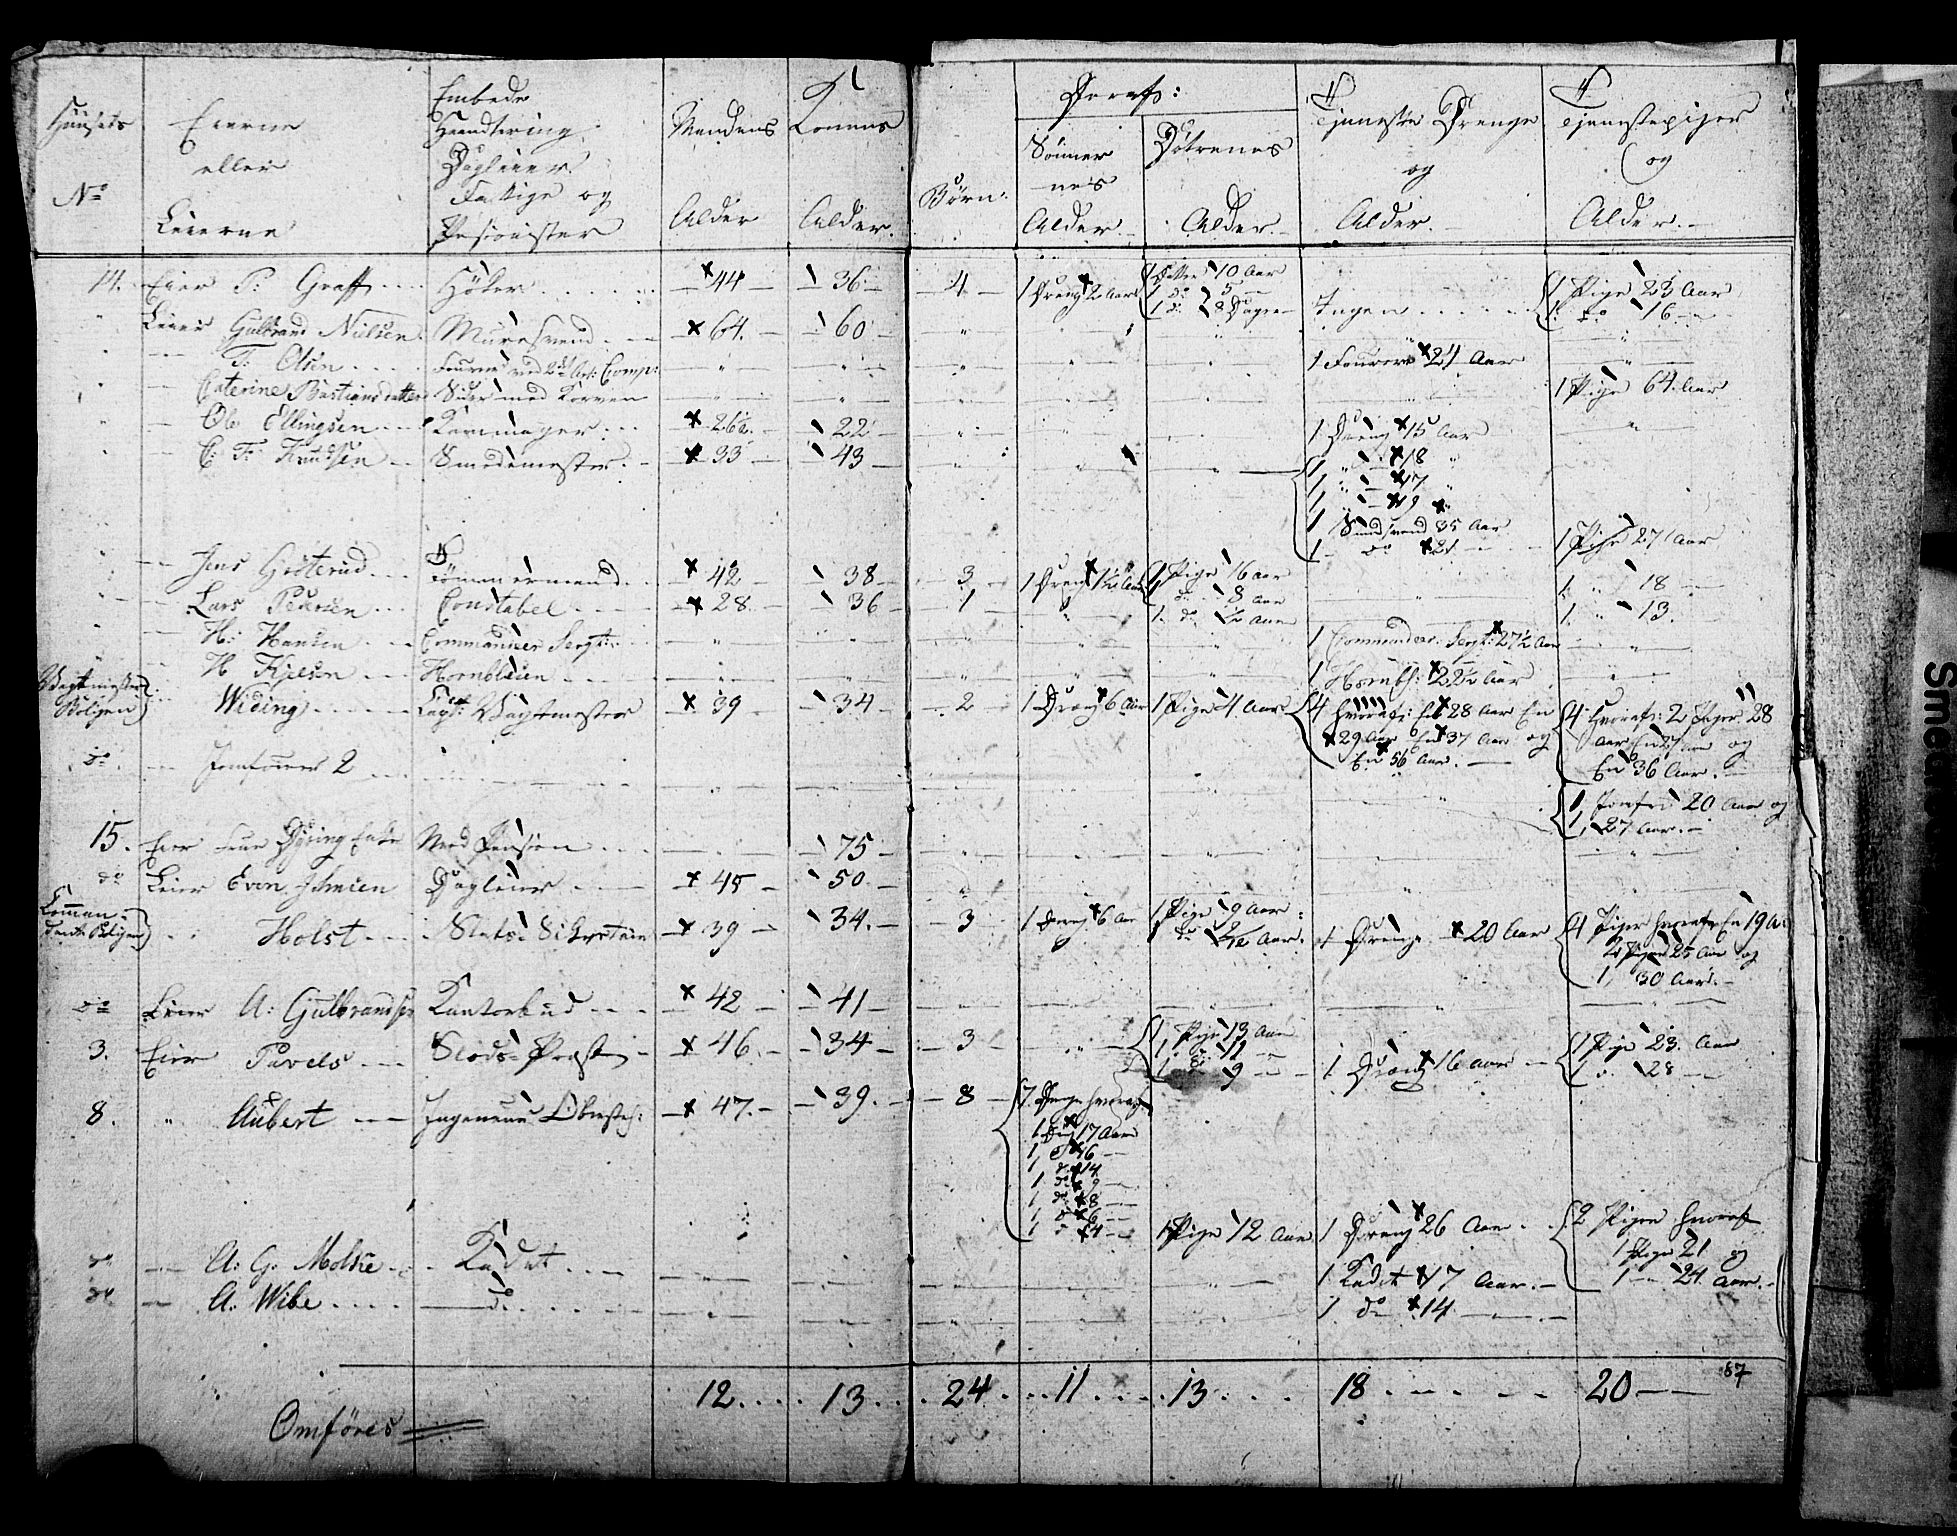 Huusets No | Eierne eller Leierne | Embede Handtering Dagleier Fattige og Pensionister | Mandens Alder | Konens Alder | Børn | Deraf: Sönnernes Alder | Døtrenes Alder | Tjeneste Drenge og Alder | Tjenestepiger og Alder
14. Eier P: Graff Höker 44 36 4 1 Dreng 2 Aar 1 Datter 10 Aar Ingen 1 Pige 23 Aar
1 do 5 1 do 16
1 d: 8 Dage
Leier Gulbrand Nielsen Muursvend 64. 60
T: Olsen Fourer ved 2den Art: Comp: 1 Fourer 24 Aar
Caterine Bastiansdatter Sidder med Kurven 1 Pige 64 Aar
Ole Ellingsen Kammager 26½ 22 1 Dreng 15 Aar
C: F: Knudsen Smedemester 33 43 1 18
1 17
1 19
1 Smedsvend 35 Aar
1 do 21 1 Pige 27 Aar
Jens Tömmermand 42 38 3 1 Dreng 1½ Aar 1 Pige 16 Aar 1 18
1 8 Aar
Lars Pedersen Constabel 28 36 1 1 do ½ Aar 1 13
H: Hansen Commandeer Sergt: 1 Commandeer Sergt: 27½ Aar
H Kjelsen Hornblæser 1 Hornbl: 22½ Aar
Vagtmester Boligen Widing Vagtmester 39 34 2 1 Dreng 6 Aar 1 Pige 4 Aar 4 hvoraf: En 28 Aar En 4 hvoraf: 2 Piger 28
29 Aar En 37 Aar og Aar En 27 Aar og
En 56 Aar. En 36 Aar.
do Jomfruer 2 1 Jomfru 20 Aar og
1 27 Aar.
15. Eier Enke Med Pension 75
do Leier Even Dagleier 45 50
Commandant Boligen Holst Slots 39 34. 3 1 Dreng 6 Aar 1 Pige 9 Aar 1 Dreng 20 Aar 4 Piger hvoraf En 19 A:
1 do ½ Aar. 2 Piger 25 Aar og
1 30 Aar.
do Leier A: Gulbrandsen Kontorbud 42 41
3. Eier Pavels Slots-Præst 46. 34 3 1 Pige 13 Aar 1 Dreng 16 Aar 1 Pige 23. Aar
1 11 1 28
1 9
8. Aubert Ingenieur 47. 39. 8 7 Drenge hvoraf
1 Dreng 17 Aar
1 16
1 do 14
1 do 9
1 do 8
1 6
1 4 1 Pige 12 Aar 1 Dreng 26 Aar 2 Piger hvoraf
1 Pige 21 og
do A: G: Moltke Kadet 1 Kadet 17 Aar. 1 24 Aar.
do A: Wibe do 1 do 14
87
12. 13. 24. 11 13 18 20
Omföres
Smed